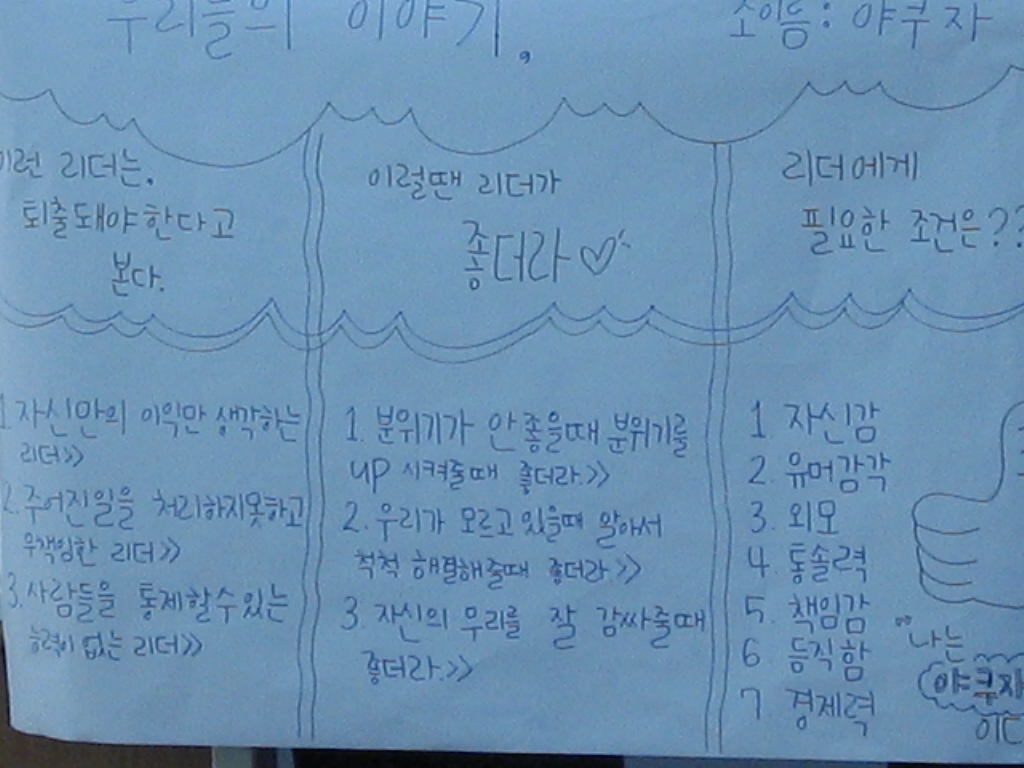 우리들의 이야기.
조이름: 야쿠자
이런 리더는.
퇴출돼야한다고
본다.
1. 자신만의 이익만 생각하는
리더>>
2. 주어진일을 처리하지못하고
무책임한 리더>>
3. 사람들을 통제할수있는
능력이 없는 리더>>
이럴땐 리더가
좋더라♡
1. 분위기가 안좋을때 분위기를
up 시켜줄때 좋더라.>>
2. 우리가 모르고있을때 알아서
척척 해결해줄때 좋더라.>>
3. 자신의 무리를 잘 감싸줄때
좋더라.>>
리더에게
필요한 조건은??
1. 자신감
2. 유머감각
3. 외모
4. 통솔력
5. 책임감
6 듬직함
7 경제력
"나는
야쿠자
이다